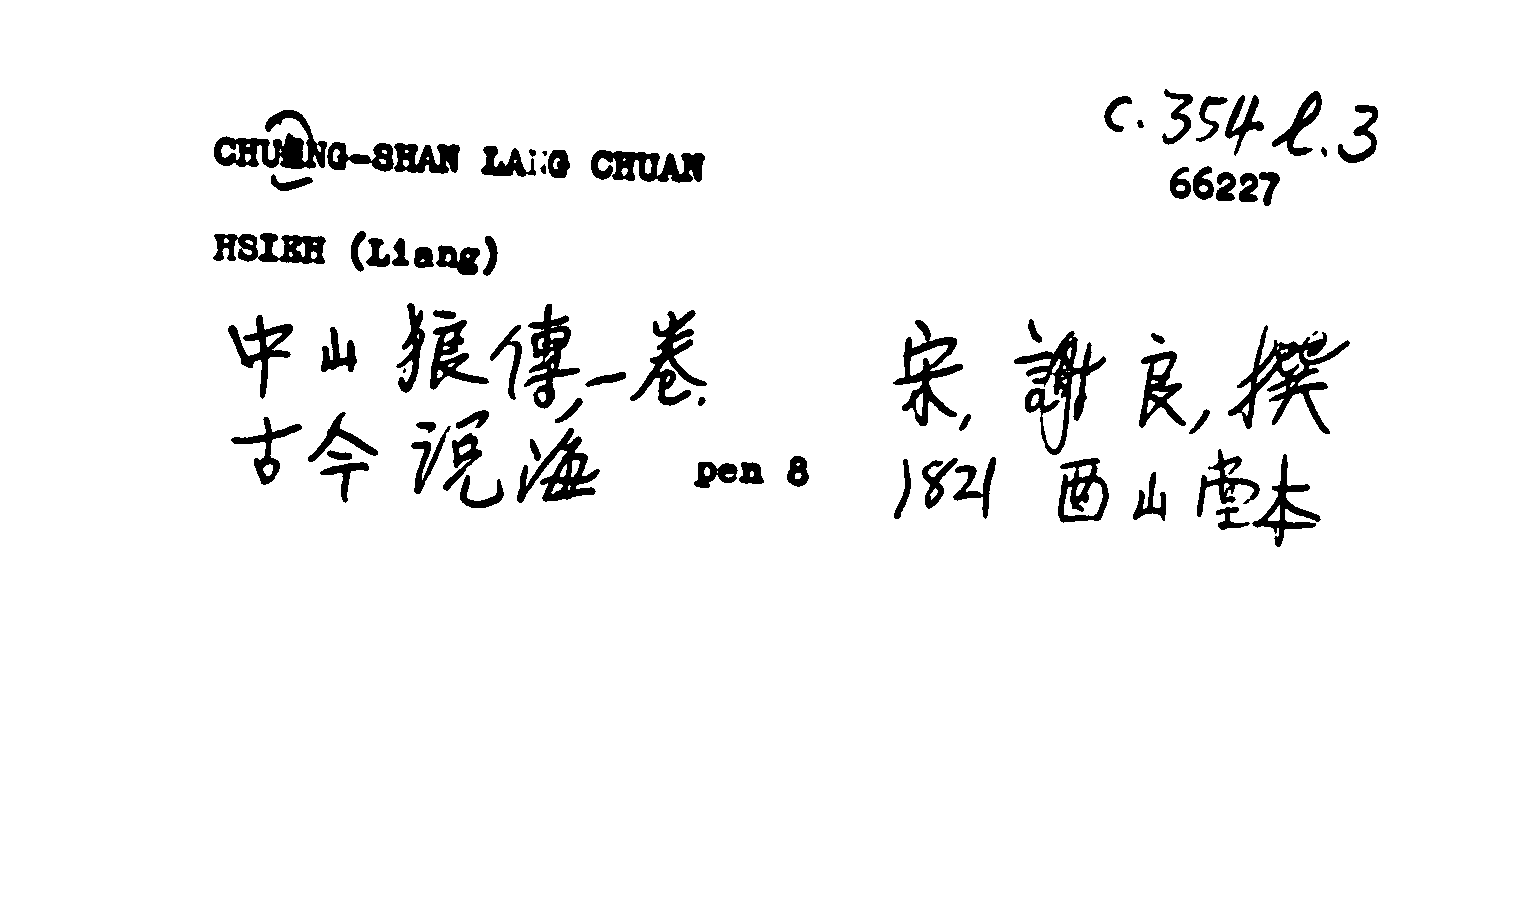 c.354 l.3
66227
CHUNG-SHAN LANG CHUAN
HSIEH (Liang)
中山狼傳,一卷. 宋,謝良,撰
古今说海 pen 8 1821 酉山堂本